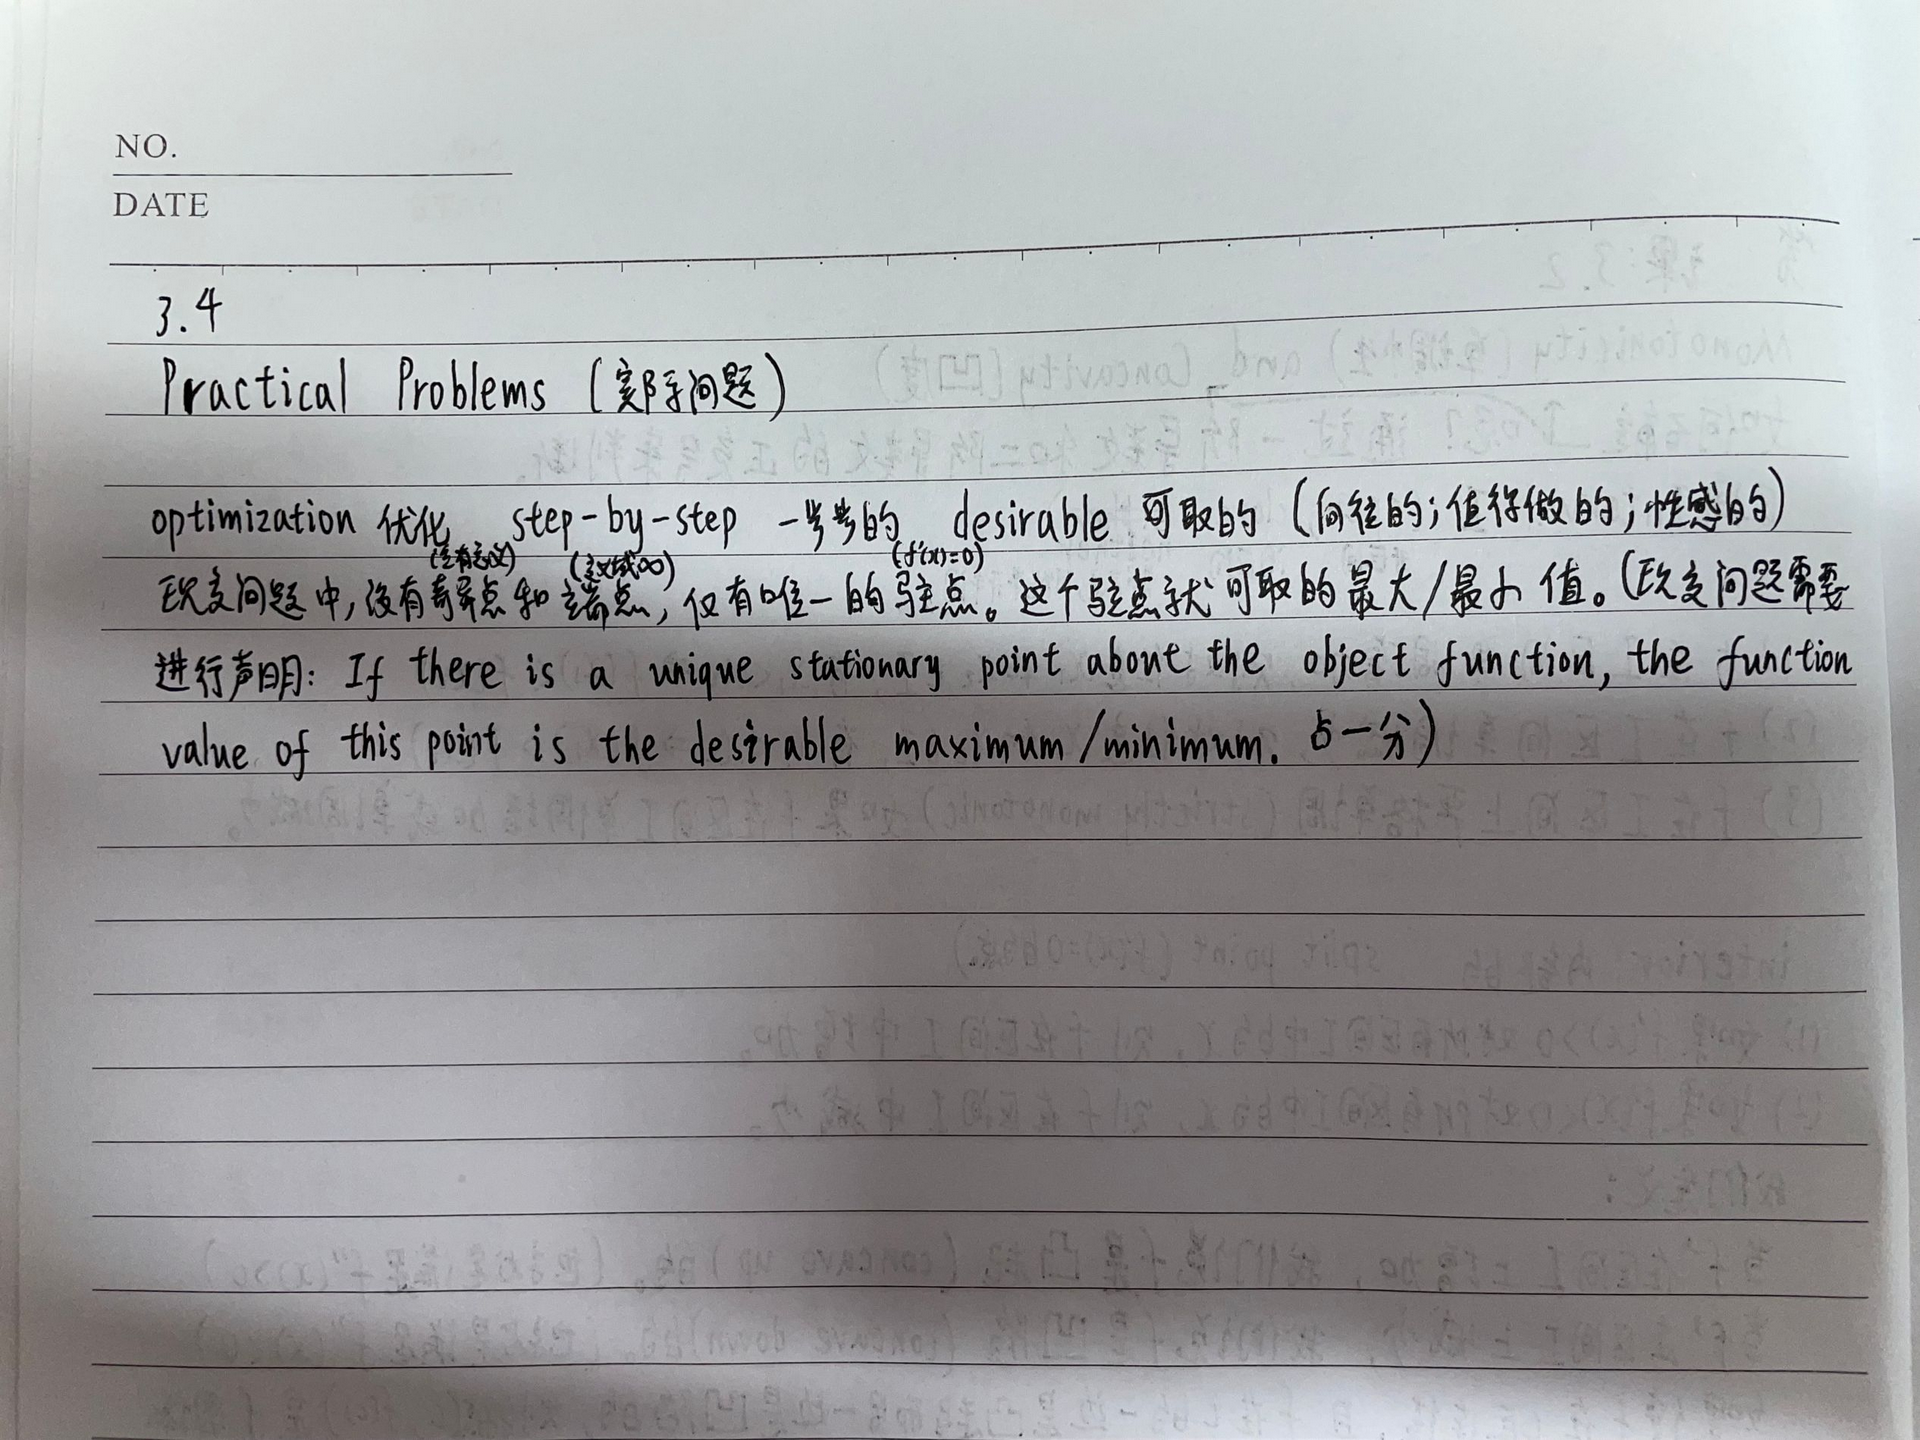 NO.
DATE
3.4
Practical Problems (实际问题)
optimization 优化 step-by-step 一步步的 desirable 可取的 (向往的;值得做的;性感的)
(f'(x)=0)
现实问题中,没有奇异点和端点,仅有唯一的驻点。这个驻点就可取的最大/最小值。(现实问题需要
进行声明: If there is a unique stationary point about the object function, the function
value of this point is the desirable maximum/minimum. 占一分)